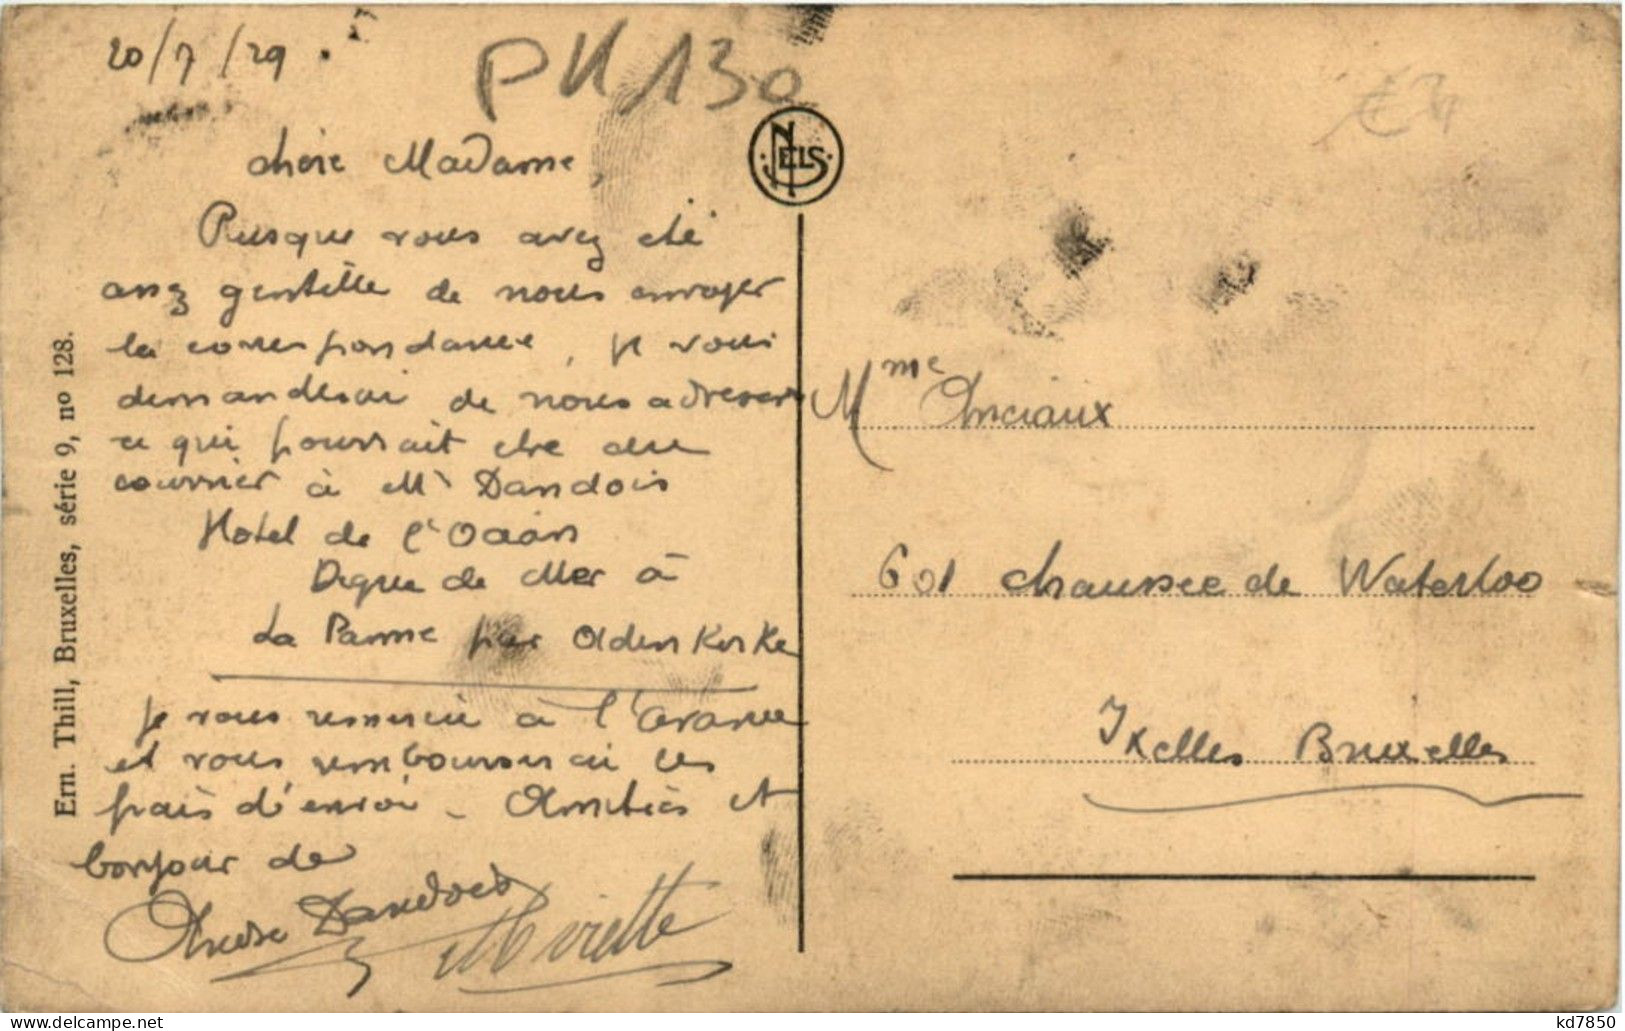 20/7/29
PK 130
€ 3
NELS
chère Madame,
Puisque vous avez été
assez gentille de nous envoyer
la correspondance, je vous
demanderai de nous adresser
ce qui pourrait être du
courrier à Mr Dandois
Hotel de l'Océan
Digue de Mer à
La Panne par Adenkerke
je vous remercie à l'avance
et vous rembourserai les
frais d'envoi - Amitiés et
bonjour de
Andre Dandois
Mariette
Mme Anciaux
601 chaussée de Waterloo
Ixelles Bruxelles
Ern. Thill, Bruxelles, série 9, no 128.
kd7850